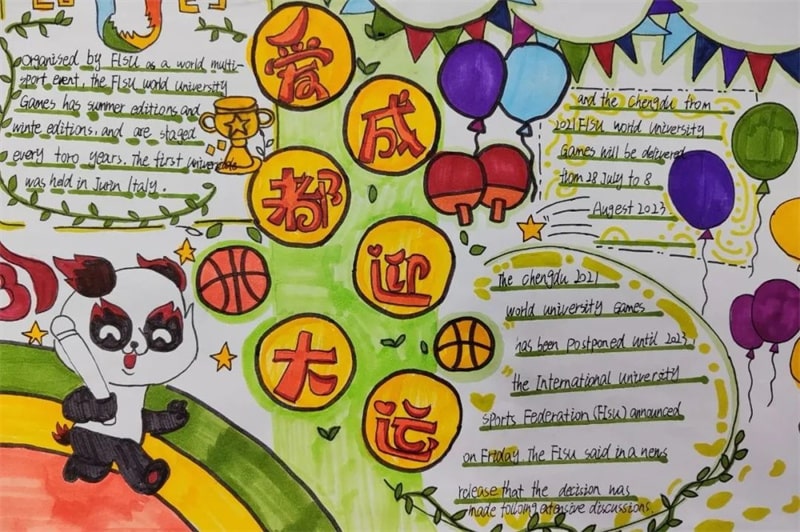 Organised by FISU as a world multi-
sport event, the FISU world university
Games has summer editions and
winte editions, and are staged
every toro years. The first universiade
was held in Jurin Italy.
爱
成
都
迎
大
运
and the chengdu from
2021 FISU world university
Games will be delivered
from 28 July to 8
Augest 2023.
The chengdu 2021
world university games
has been postponed until 2023,
the International university
sports Federation (FISU) announced
on Friday. The FISU said in a news
release that the decision was
made following extensive discussions.